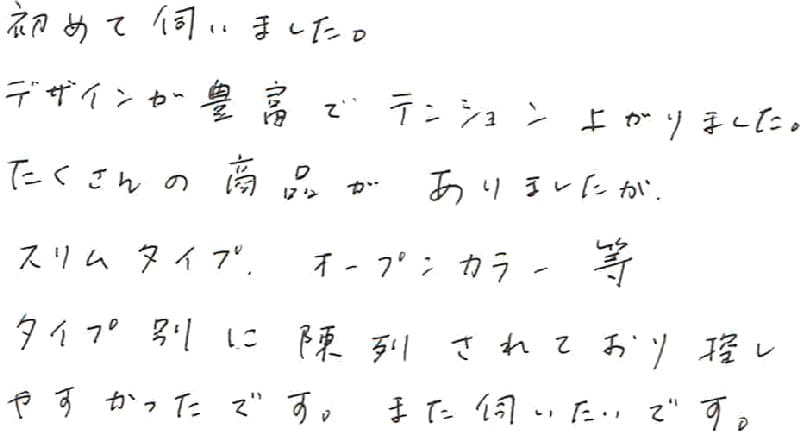 初めて伺いました。
デザインが豊富でテンション上がりました。
たくさんの商品がありましたが、
スリムタイプ、オープンカラー等
タイプ別に陳列されており探し
やすかったです。また伺いたいです。